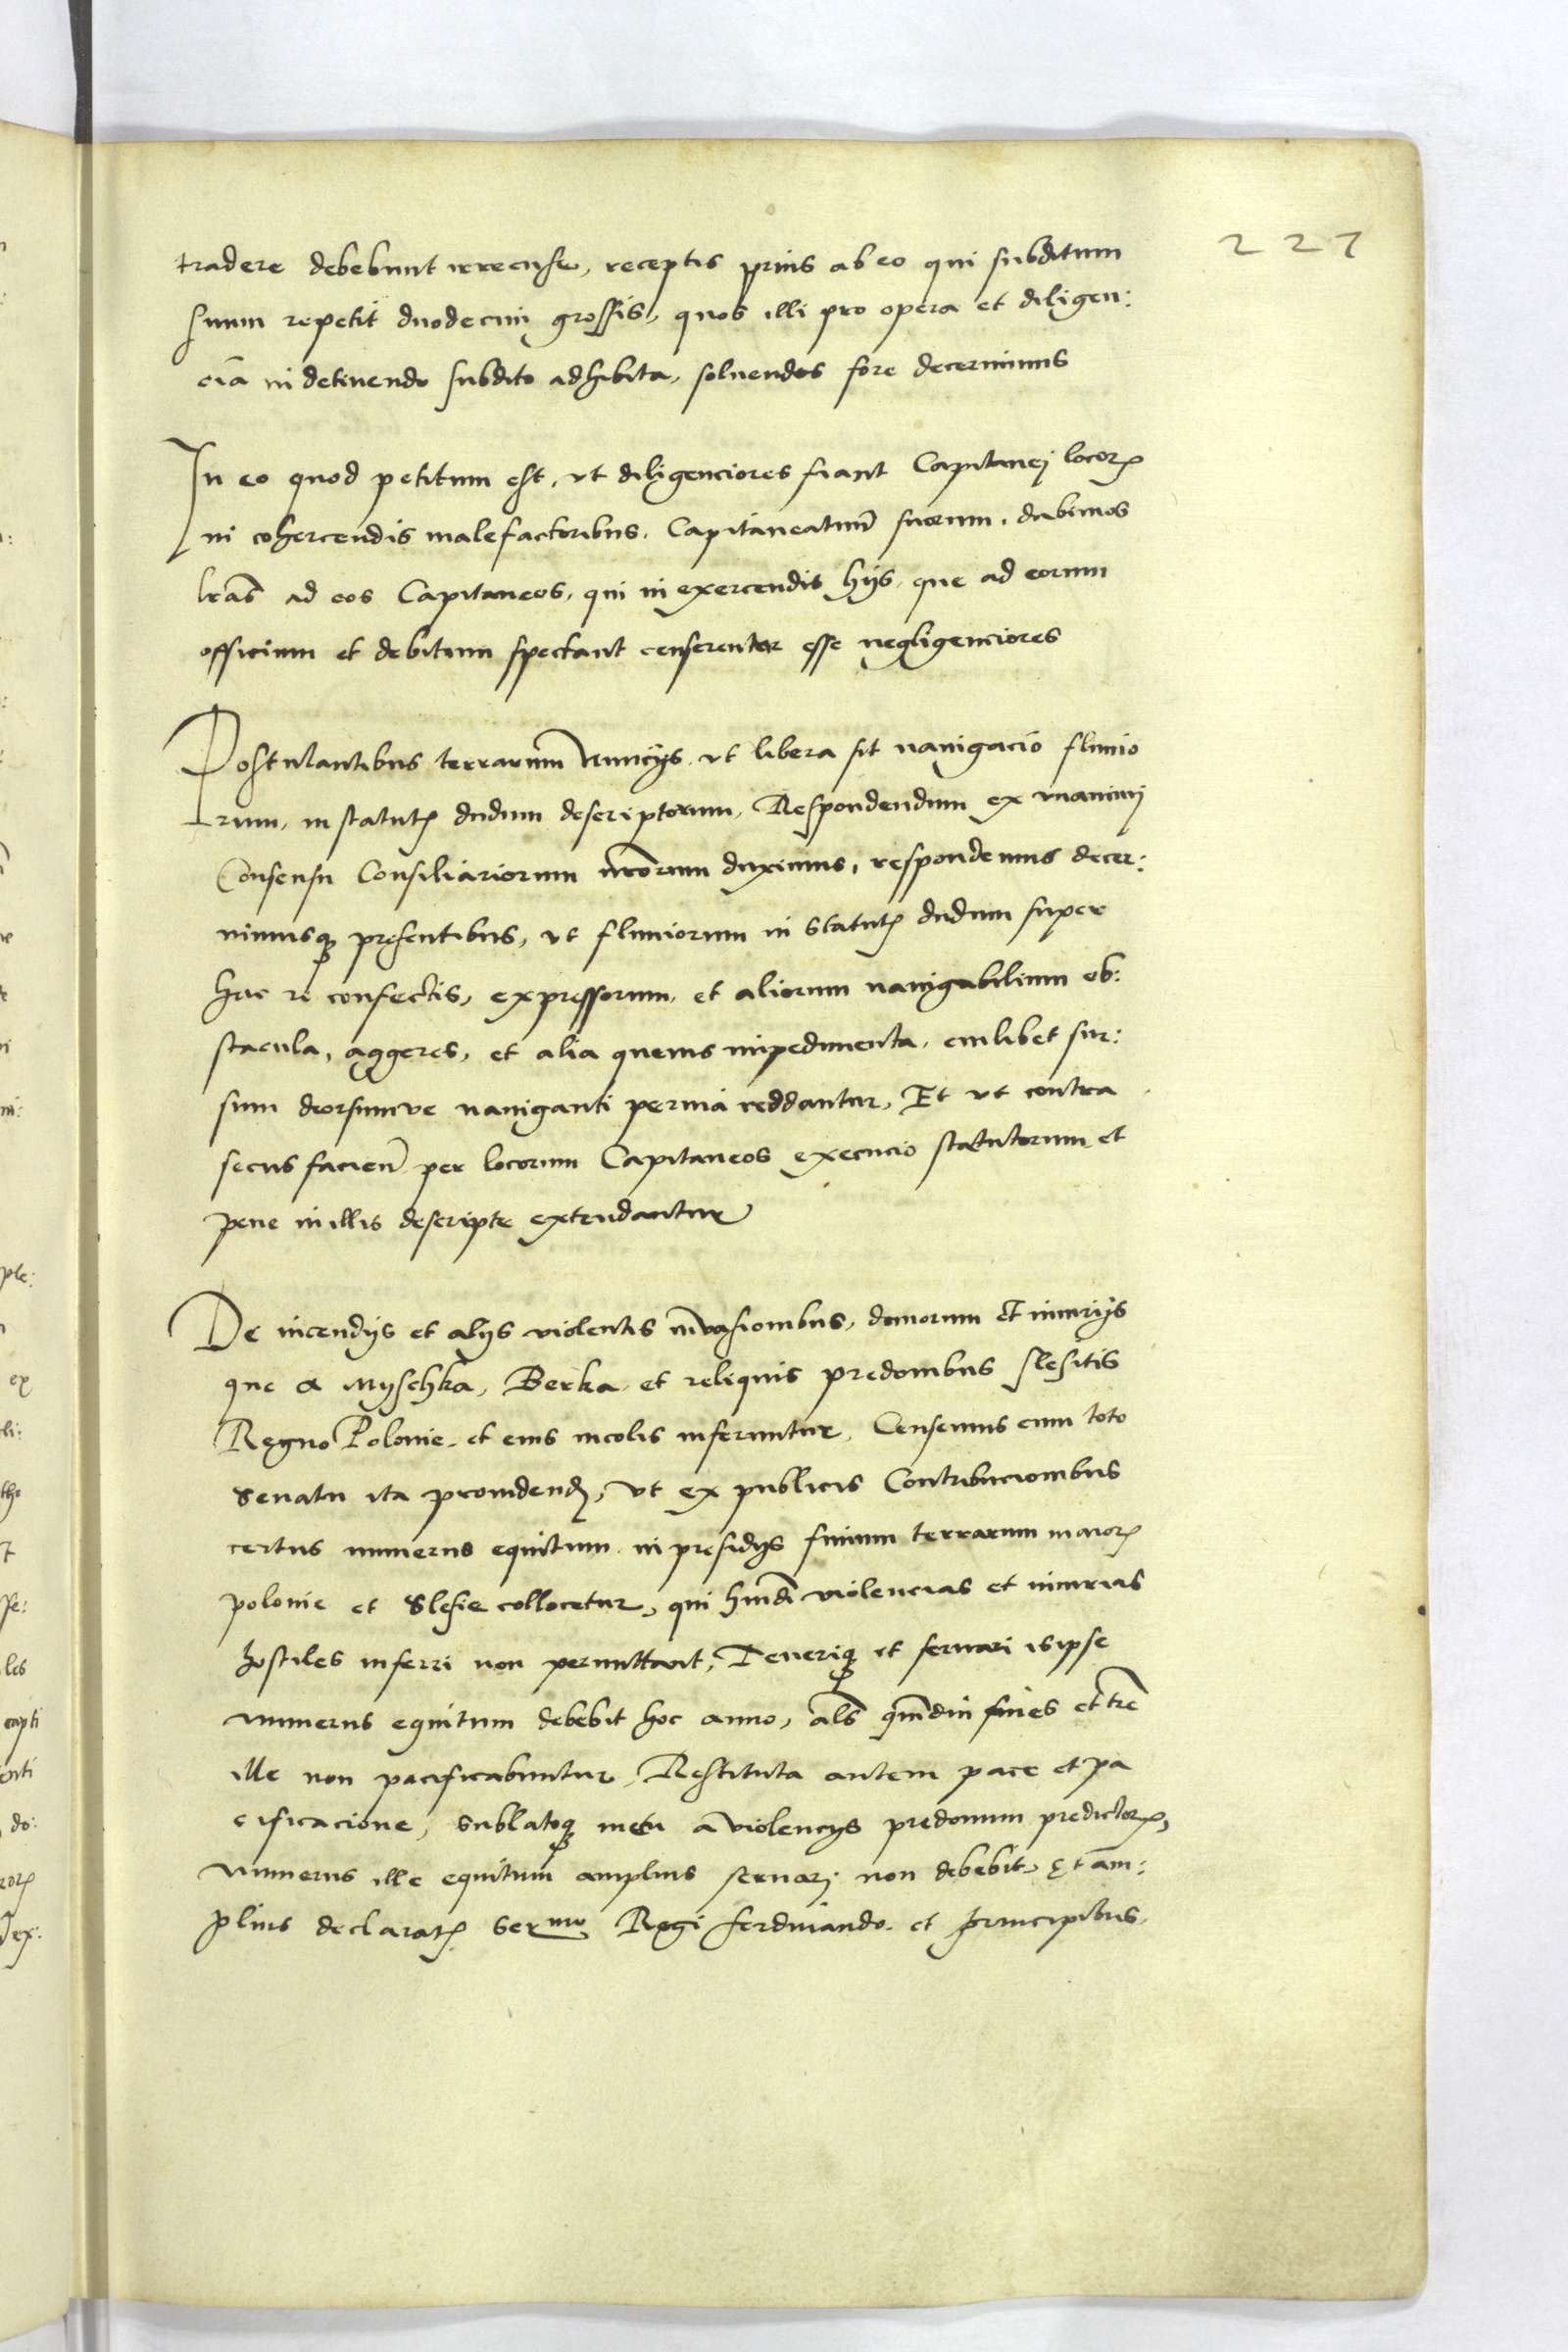 227
tradere debebunt irrecuse, receptis prius ab eo qui subditum
suum repetit duodecim grossis, quos illi pro opera et diligen:
cia in detinendo subdito adhibita, soluendos fore decernimus
In eo quod petitum est, ut diligenciores fiant Capitanej locorꝝ
in cohercendis malefactoribus. Capitaneatuum suorum, dabimus
lrãs ad eos Capitaneos, qui in exercendis hijs, que ad eorum
officium et debitum spectant censerentur esse negligenciores
Postulantibus terrarum Nuncijs ut libera sit nauigacio fluuio
rum, in statutꝭ dudum descriptorum, Respondendum ex vnanimj
Consensu Consiliariorum nrõrum duximus, respondemus decer:
nimusqꝫ presentibus, ut fluuiorum in Statutꝭ dudum super
hac re confectis, expressorum, et aliorum nauigabilium ob:
stacula, aggeres, et alia queuis impedimenta, cuilibet sur:
sum deorsumve nauiganti peruia reddantur, Et ut contra
secus facien̄ per locorum Capitaneos execucio statutorum et
pene in illis descripte extendantur
De incendijs et alijs violentis inuasionibus, damnorum et iniurijs
que a Myschka, Berka et reliquis predonibus slesitis
Regno Polonie et eius incolis inferuntur, Censemus cum toto
Senatu ita prouidendꝫ, ut ex publicis Contribucionibus
certus numerus equitum in presidijs finium terrarum maiorꝭ
polonie et Slesie collocetur, qui huiꝰdi violencias et iniurias
hostiles inferri non permittant, Teneriqꝫ et seruari is ipse
numerus equitum debebit hoc anno, als̄ qm̄diu fines et tre̅
ille non pacificabuntur, Restituta autem pace et pa
cificacione, sublatoqꝫ metu a violencijs predonum predictorꝝ,
Numerus ille equitum amplius seruarj non debebit, Et am:
plius declaratꝭ Sermo Regi ferdinando et principibus